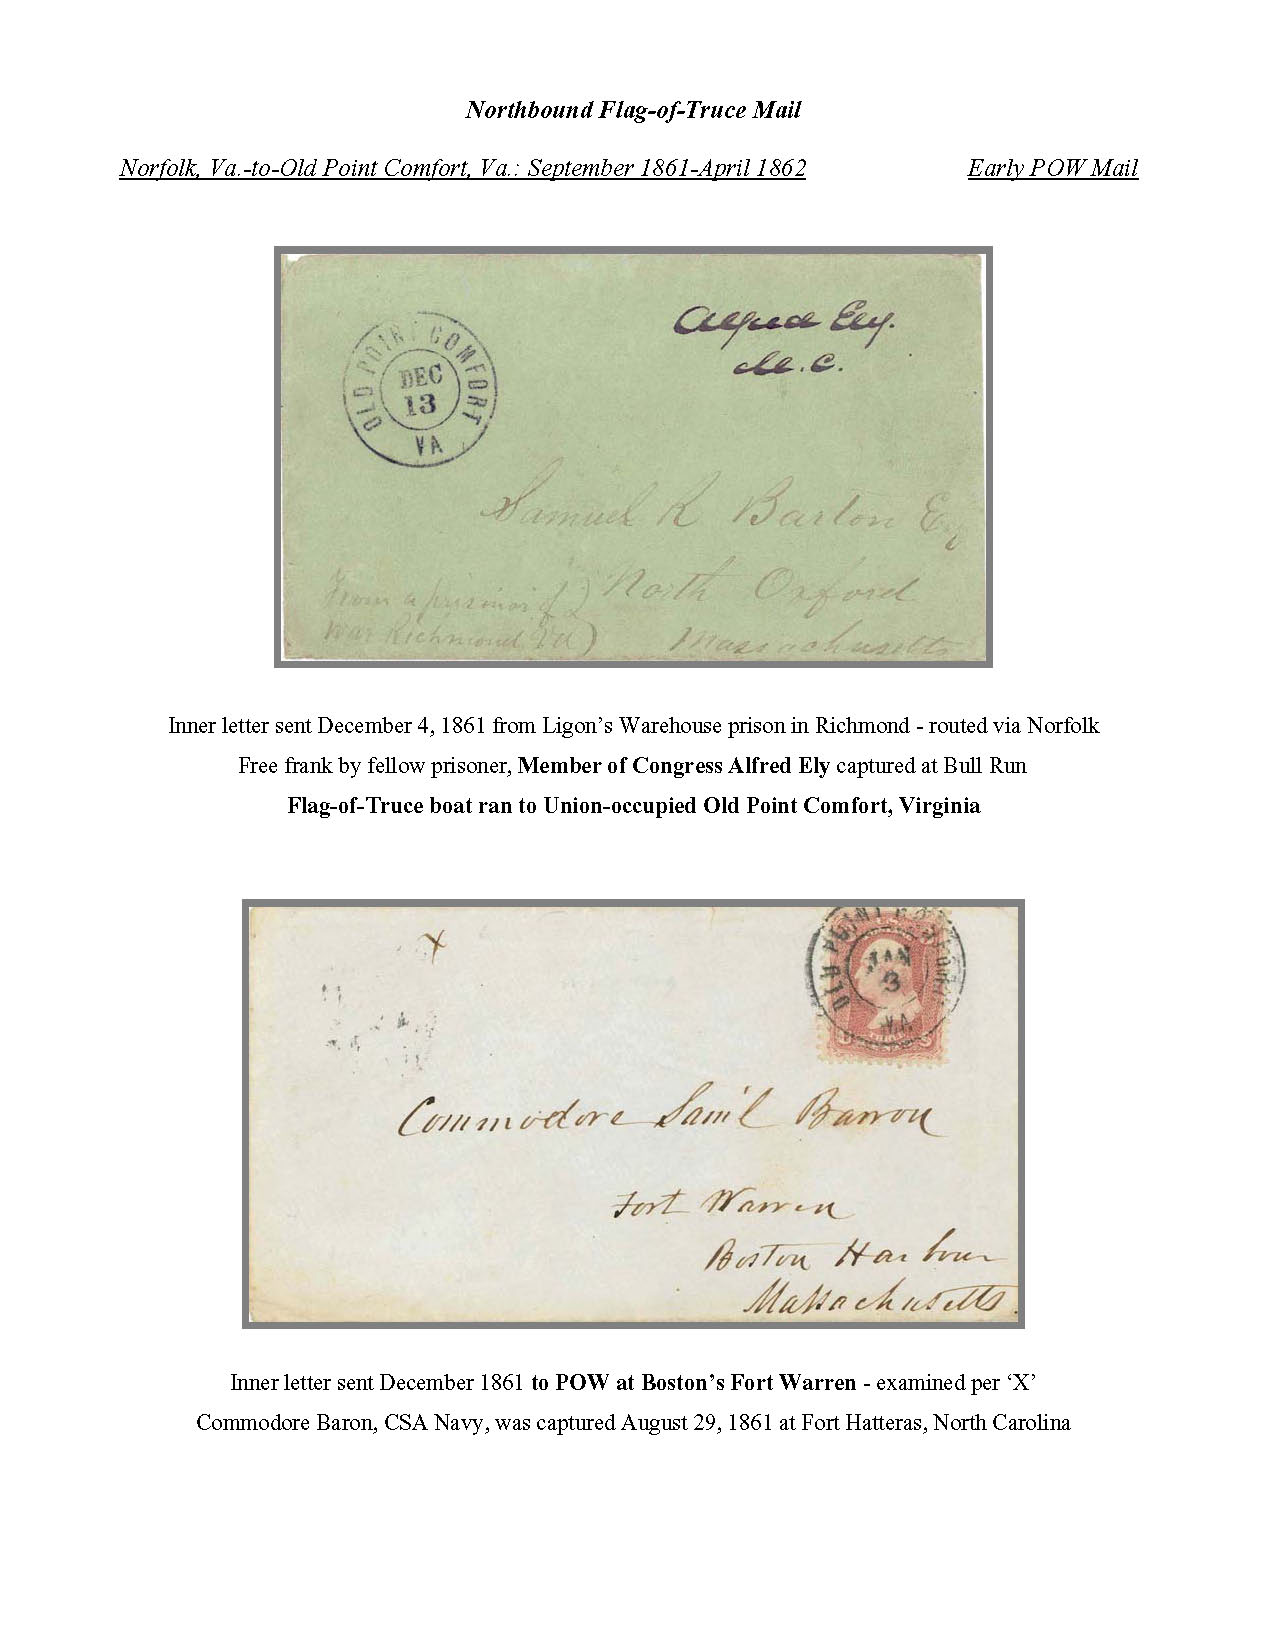 Northbound Flag-of-Truce Mail
Norfolk, Va.-to-Old Point Comfort, Va.: September 1861-April 1862 Early POW Mail
OLD POINT COMFORT
DEC
13
VA
Alfred Ely.
M. C.
Samuel R Barton Esq
North Oxford
Massachusetts
From a prisoner of
war Richmond Va)
Inner letter sent December 4, 1861 from Ligon’s Warehouse prison in Richmond - routed via Norfolk
Free frank by fellow prisoner, Member of Congress Alfred Ely captured at Bull Run
Flag-of-Truce boat ran to Union-occupied Old Point Comfort, Virginia
X
OLD POINT COMFORT
JAN
3
VA
Commodore Sam'l Barron
Fort Warren
Boston Harbour
Massachusetts.
Inner letter sent December 1861 to POW at Boston’s Fort Warren - examined per ‘X’
Commodore Baron, CSA Navy, was captured August 29, 1861 at Fort Hatteras, North Carolina